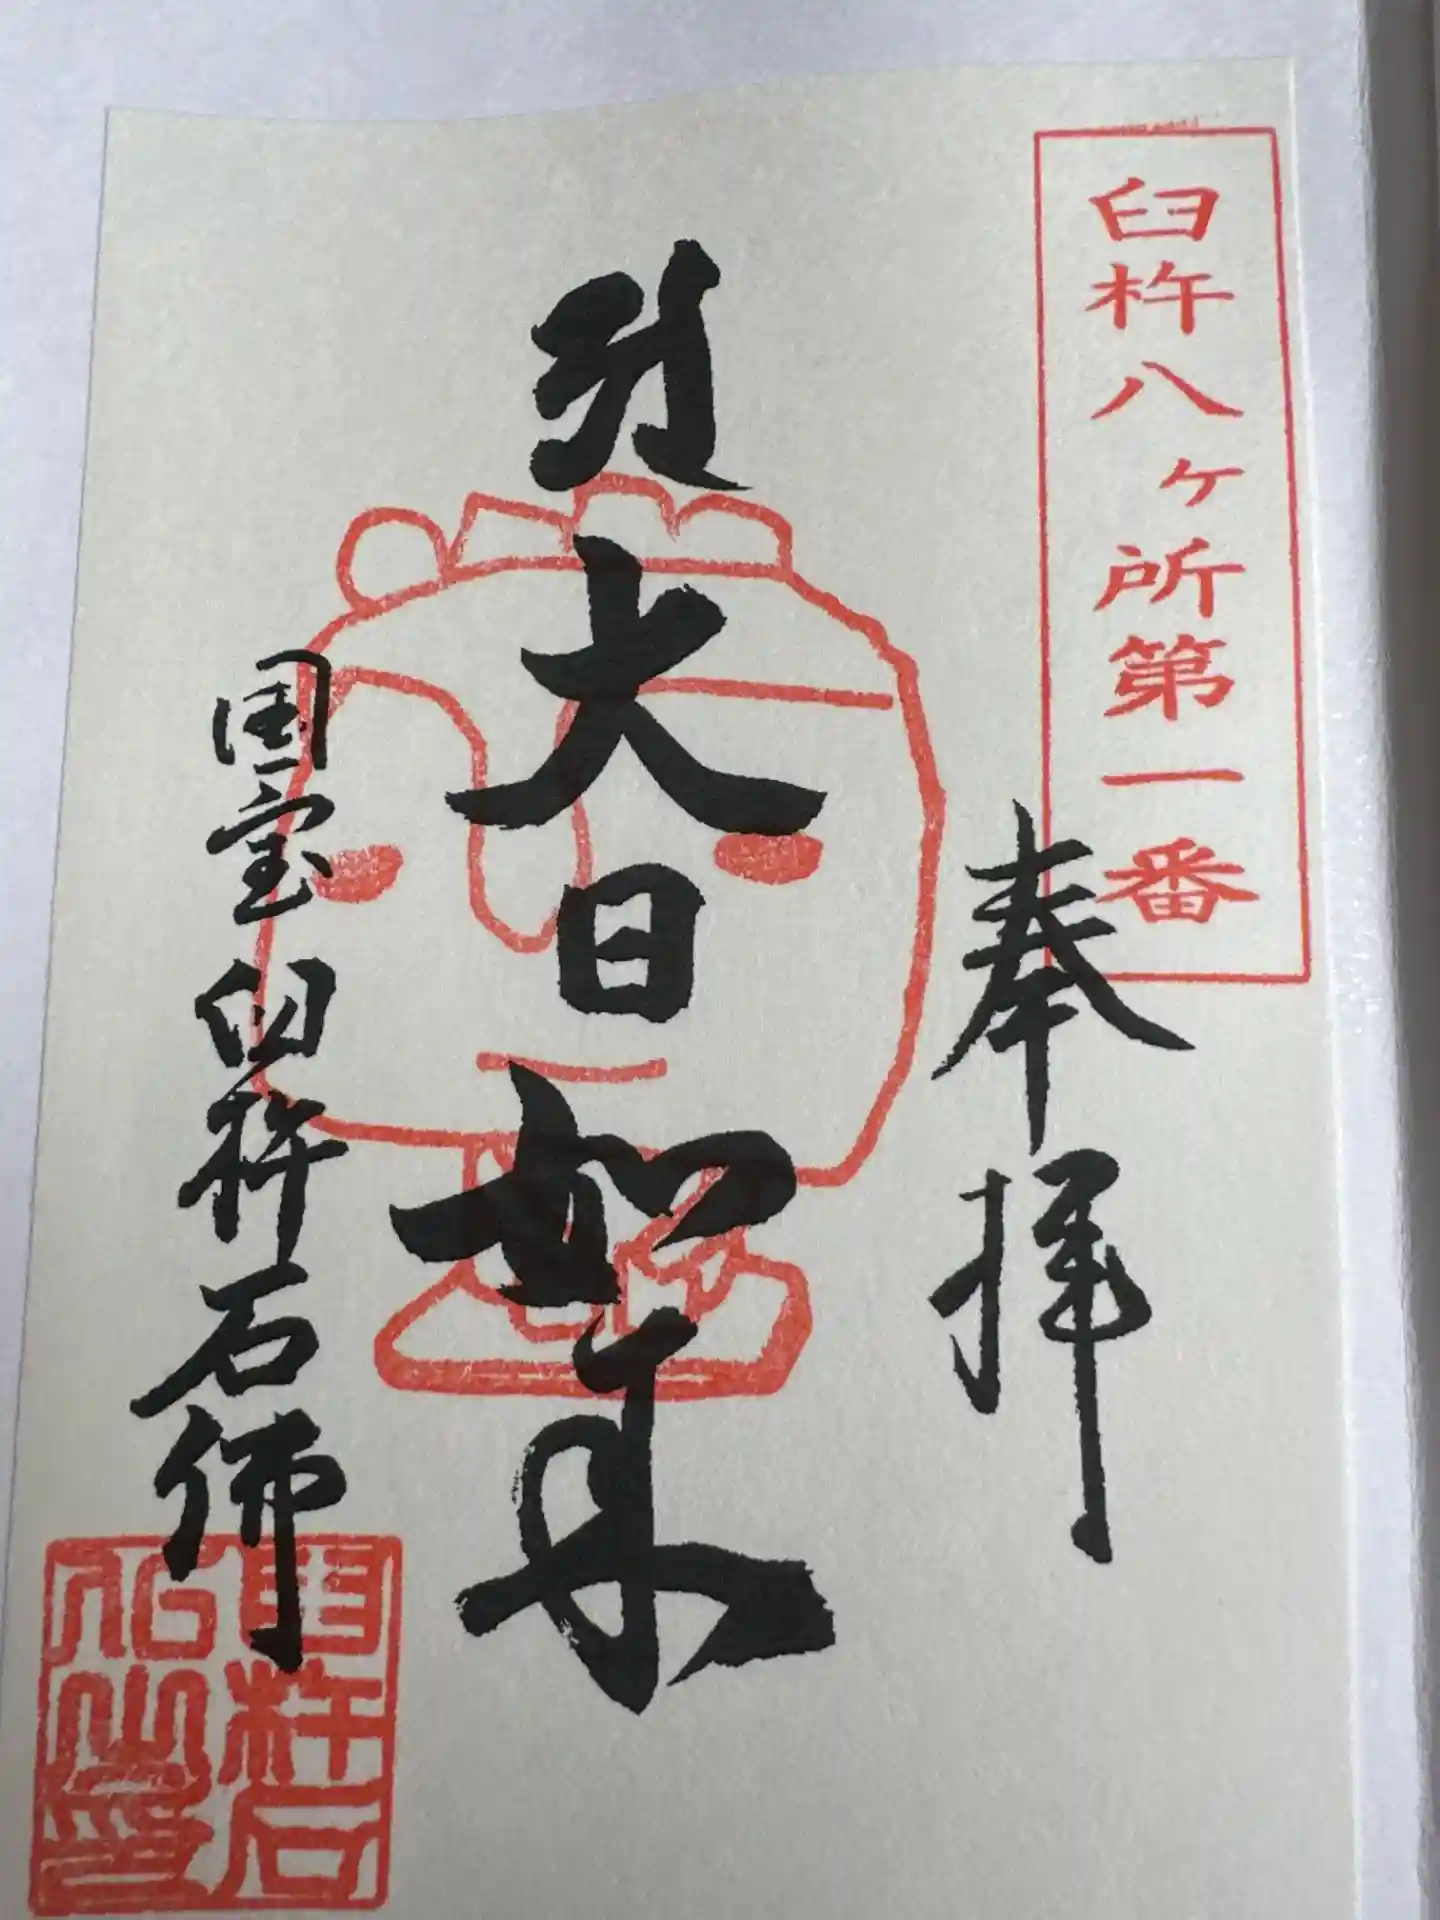 臼杵八ヶ所第一番
奉拝
大日如来
国宝臼杵石佛